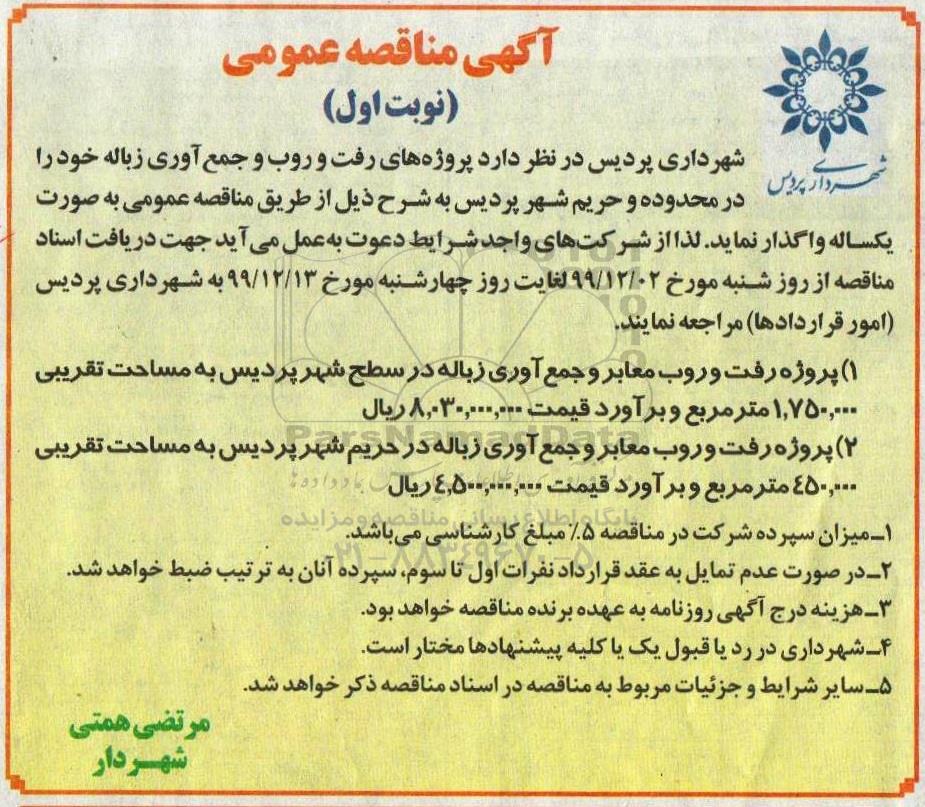 آگهی مناقصه عمومی
(نوبت اول)
شهرداری پردیس
شهرداری پردیس در نظر دارد پروژه‌های رفت و روب و جمع آوری زباله خود را
در محدوده و حریم شهر پردیس به شرح ذیل از طریق مناقصه عمومی به صورت
یکساله واگذار نماید. لذا از شرکت‌های واجد شرایط دعوت به‌عمل می‌آید جهت دریافت اسناد
مناقصه از روز شنبه مورخ ۹۹/۱۲/۰۲ لغایت روز چهارشنبه مورخ ۹۹/۱۲/۱۳ به شهرداری پردیس
(امور قراردادها) مراجعه نمایند.
۱) پروژه رفت و روب معابر و جمع آوری زباله در سطح شهر پردیس به مساحت تقریبی
۱,۷۵۰,۰۰۰ مترمربع و برآورد قیمت ۸,۰۳۰,۰۰۰,۰۰۰ ریال
۲) پروژه رفت و روب معابر و جمع آوری زباله در حریم شهر پردیس به مساحت تقریبی
۴۵۰,۰۰۰ مترمربع و برآورد قیمت ۴,۵۰۰,۰۰۰,۰۰۰ ریال
ParsNamadData
پایگاه اطلاع رسانی مناقصه و مزایده
۰۲۱-۸۸۳۴۹۶۷۰-۵
۱ـ میزان سپرده شرکت در مناقصه ۵٪ مبلغ کارشناسی می‌باشد.
۲ـ در صورت عدم تمایل به عقد قرارداد نفرات اول تا سوم، سپرده آنان به ترتیب ضبط خواهد شد.
۳ـ هزینه درج آگهی روزنامه به عهده برنده مناقصه خواهد بود.
۴ـ شهرداری در رد یا قبول یک یا کلیه پیشنهادها مختار است.
۵ـ سایر شرایط و جزئیات مربوط به مناقصه در اسناد مناقصه ذکر خواهد شد.
مرتضی همتی
شهردار